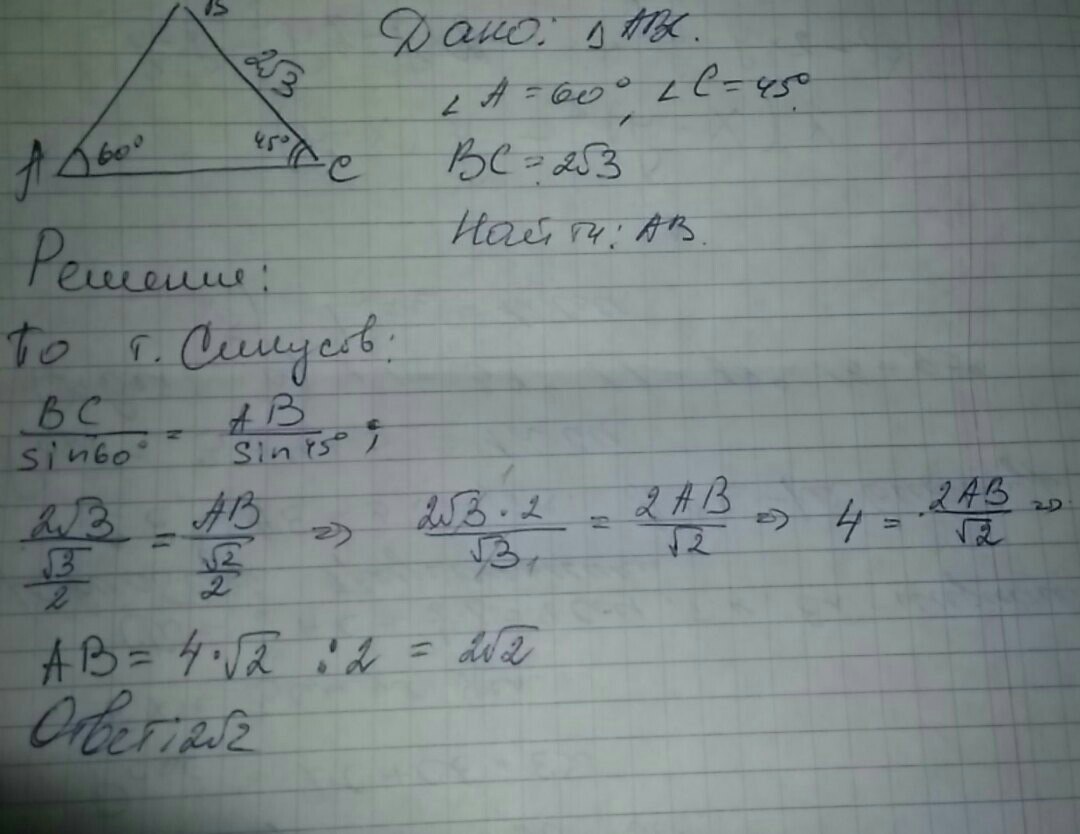 B
2√3
A 60° 45° C
Дано: Δ ABC.
∠A = 60°, ∠C = 45°.
BC = 2√3
Найти: AB.
Решение:
По т. Синусов:
BC/sin60° = AB/sin45°;
2√3/(√3/2) = AB/(√2/2) => 2√3·2/√3 = 2AB/√2 => 4 = 2AB/√2 =>
AB = 4·√2 :2 = 2√2
Ответ: 2√2